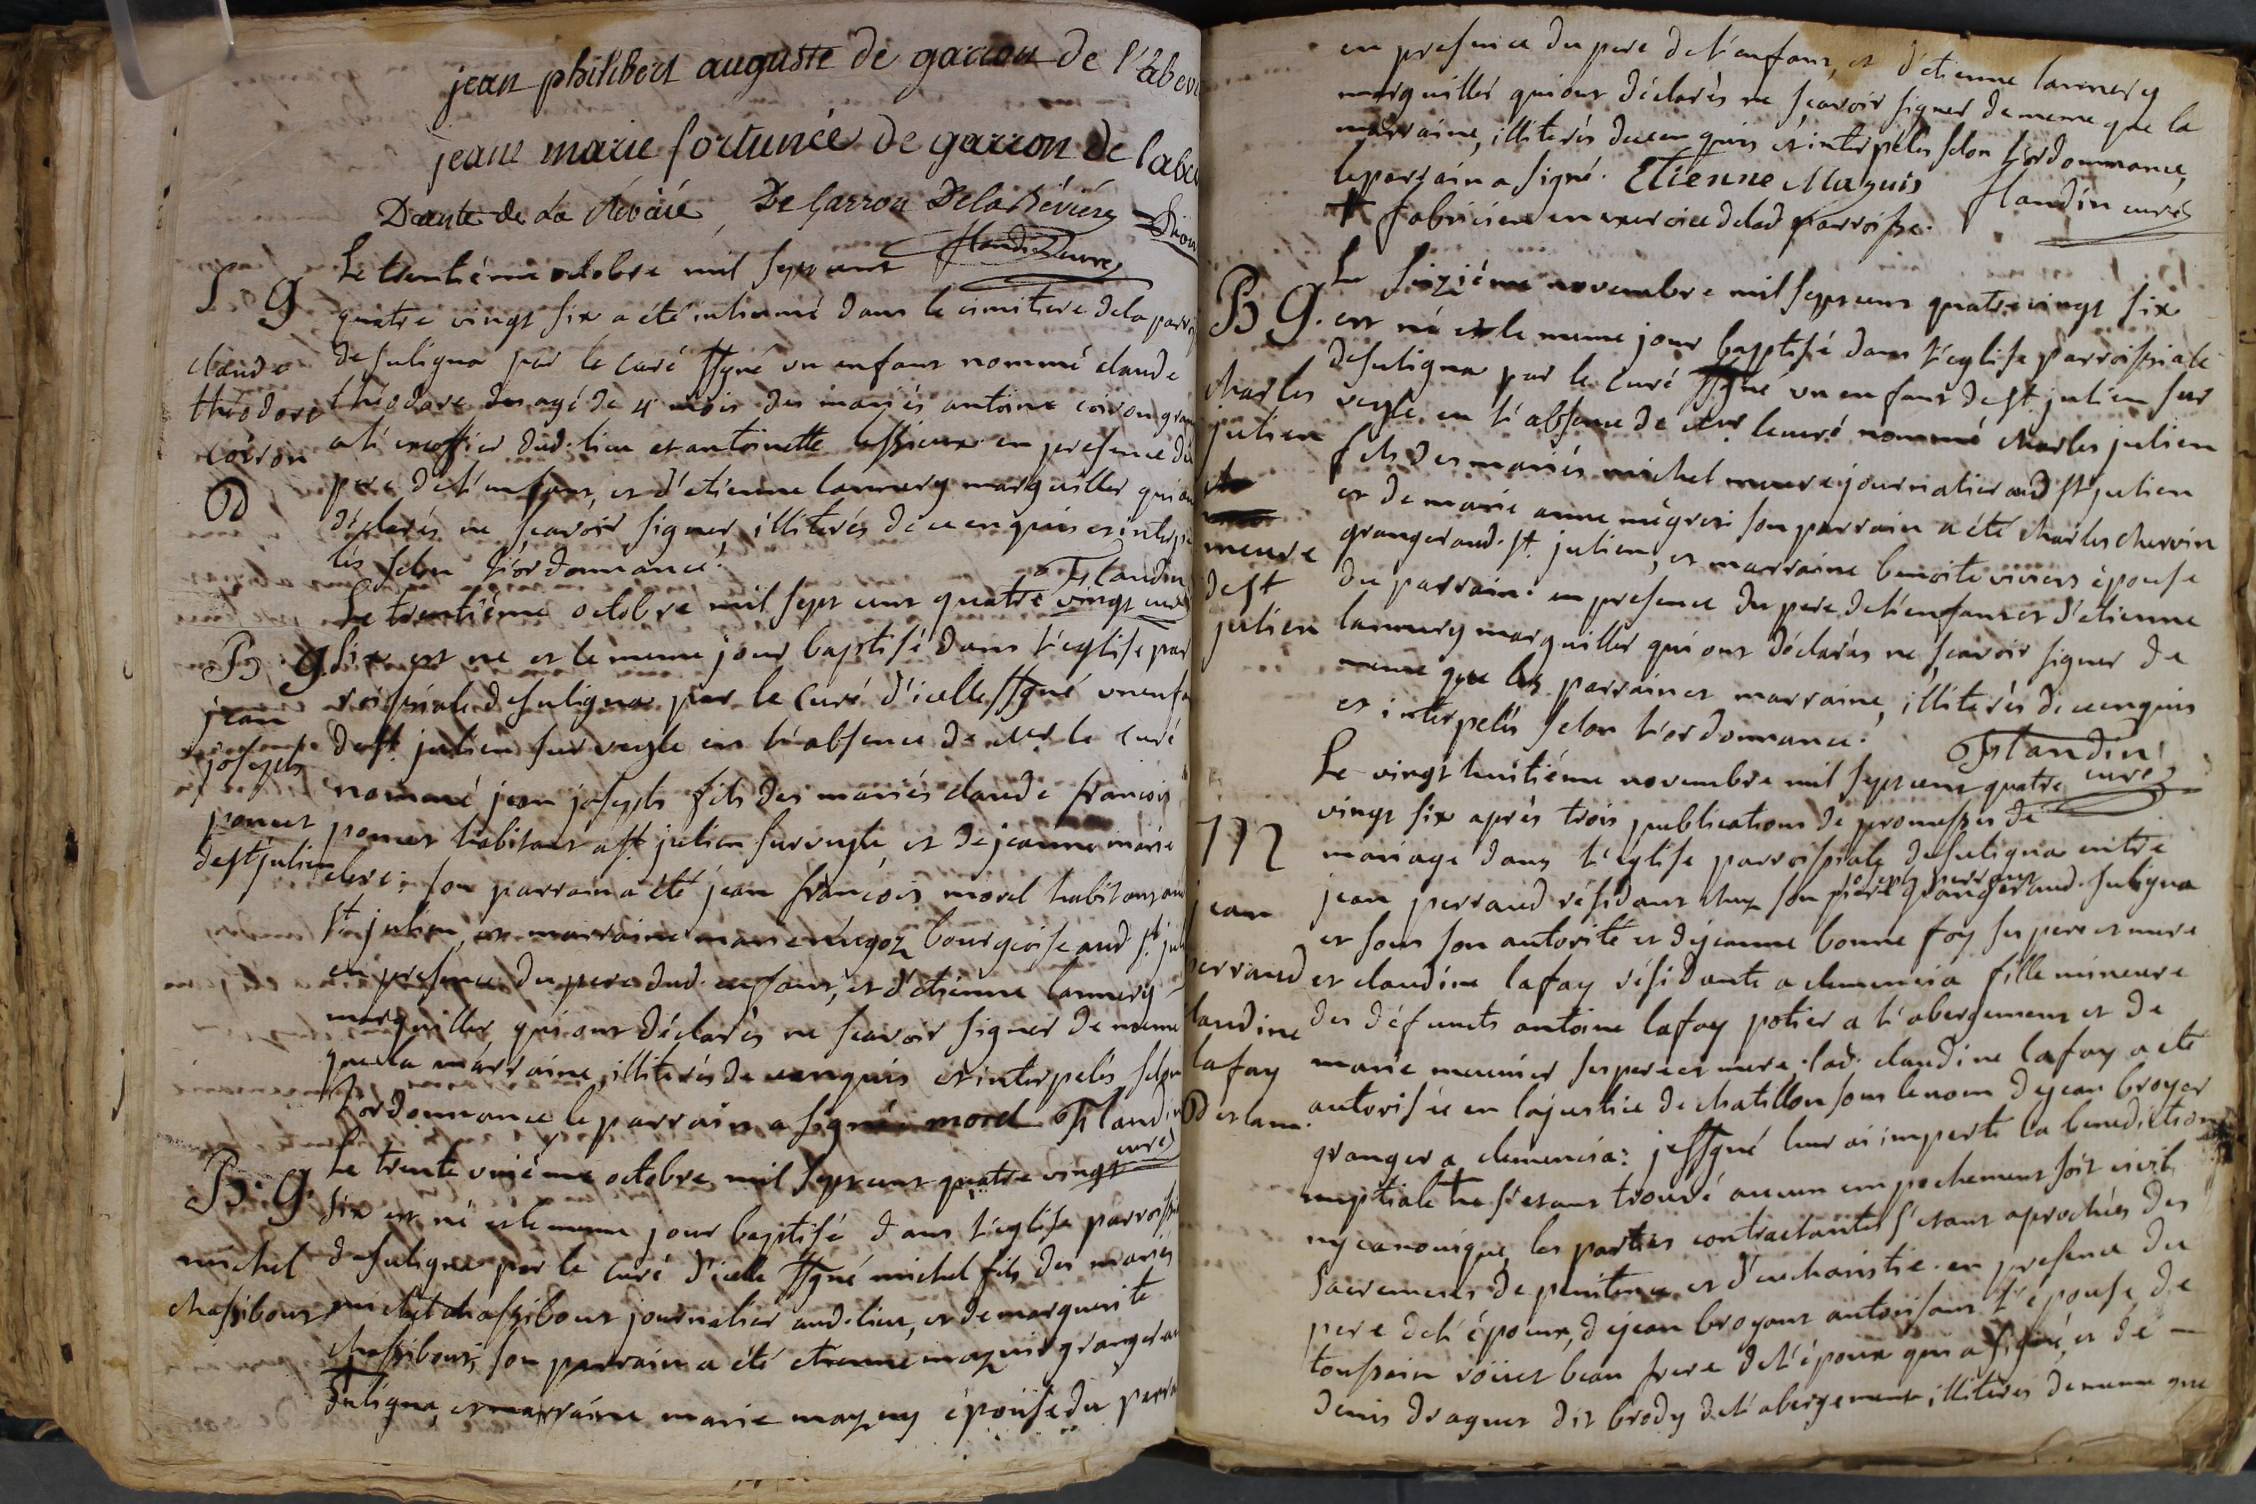 jean philibert auguste de garron de l'abev
jeane marie fortunée de garron de labe
Dante de La De Garron De la Bévière
Le trentiéme octobre mil sept cent flandin curé
S g
quatre vingt six a été inhumé dans le cimitiere dela parr
claude
de suligna par le curé ssgné un enfant nommé claude
théodore
théodore agé de 4 mois des mariés antoine coiron gran
coiron
dud. lieu et antoinette en presence du
D
pere de l'enfant, et d'etienne lannery marguiller qui on
déclarés ne sçavoir signer, illiterés de ce enquis et interpe
lés selon l'ordonnance. flandin
Le trentiéme octobre mil sept cent quatre vingt curé
B g
six est né et le meme jour baptisé dans l'eglise par
jean
roissiale de suligna par le curé d'icelle ssgné un enfa
joseph
de st julien sur veyle en l'absence de mr. le curé
nommé jean joseph fils des mariés claude francois
poncet
poncet habitant a st julien sur veyle, et de jeanne marie
de st julien
clerc: son parrain a été jean françois morel habitant aud
st julien, et marraine marie négoz bourgeoise aud st. jul
en presence du pere dud. enfant, et d'etienne lannery
marguiller, qui ont déclarés ne scavoir signer de meme
que la marraine, illiterés de ce enquis et interpelés selon
l'ordonnance le parrain a signé. morel flandin
curé
Le trente uniéme octobre mil sept cent quatre vingt
B. g.
six est né et le meme jour baptisé dans l'eglise parroissi
michel
de suligna par le curé d'icelle ssgné michel fils des mariés
chassibout
michel chassibout journalier aud. lieu, et de marguerite
chassibout; son parrain a été etienne mazuis granger au
suligna, et marraine marie mazuy épouse du parra
en presence du pere de l'enfant, et d'etienne lannery
marguiller qui ont déclarés ne sçavoir signer de meme que la
marraine, illiterés de ce enquis et interpelés selon l'ordonnance,
le parrain a signé. Etienne Mazuis flandin curé
fabricien en exercice de lad parroisse.
Le siziéme novembre mil sept cent quatre vingt six
B g.
est né et le meme jour baptisé dans l'eglise parroissiale
de suligna par le curé ssgné un enfant de st. julien sur
charles
veyle en l'absence de mr le curé nommé charles julien
julien
fils des mariés michel meure journalier aud st julien
et de marie anne négros: son parrain a été charles chervin
meure
granger aud. st. julien, et marraine benoite viviers épouse
de st
du parrain: en presence du pere de l'enfant et d'etienne
julien
lannery marguiller qui ont déclarés ne sçavoir signer de
meme que les parrain et marraine, illiterés de ce enquis
et interpelés selon l'ordonnance. flandin
Le vingt huitiéme novembre mil sept cent quatre curé
vingt six après trois publications de promesses de
m
mariage dans l'église parroissiale de suligna entre
jean
jean perraud résidant chez son pere joseph perraud granger aud. suligna
et sous son autorité et de jeanne bonne foy ses pere et mere
perraud
et claudine lafay résidante a clemencia fille mineure
claudine
des défunts antoine lafay potier a l'abergement et de
lafay
marie meunier ses pere et mere. lad. claudine lafay a été
autorisée en la justice de chatillon sous le nom de jean broyer
granger a clemencia: je ssgné leur ai imparti la benediction
nuptiale ne s'etant trouvé aucun empechement soit civil
ny canonique, les parties contractantes s'etant aprochés des
sacrements de penitence et d'eucharistie. en presence du
pere de l'époux, de jean broyer autorisant l'épouse, de
toussain beau frere de l'époux qui a signé, et de
denis draguet dit brody de l'abergement illiterés de meme que